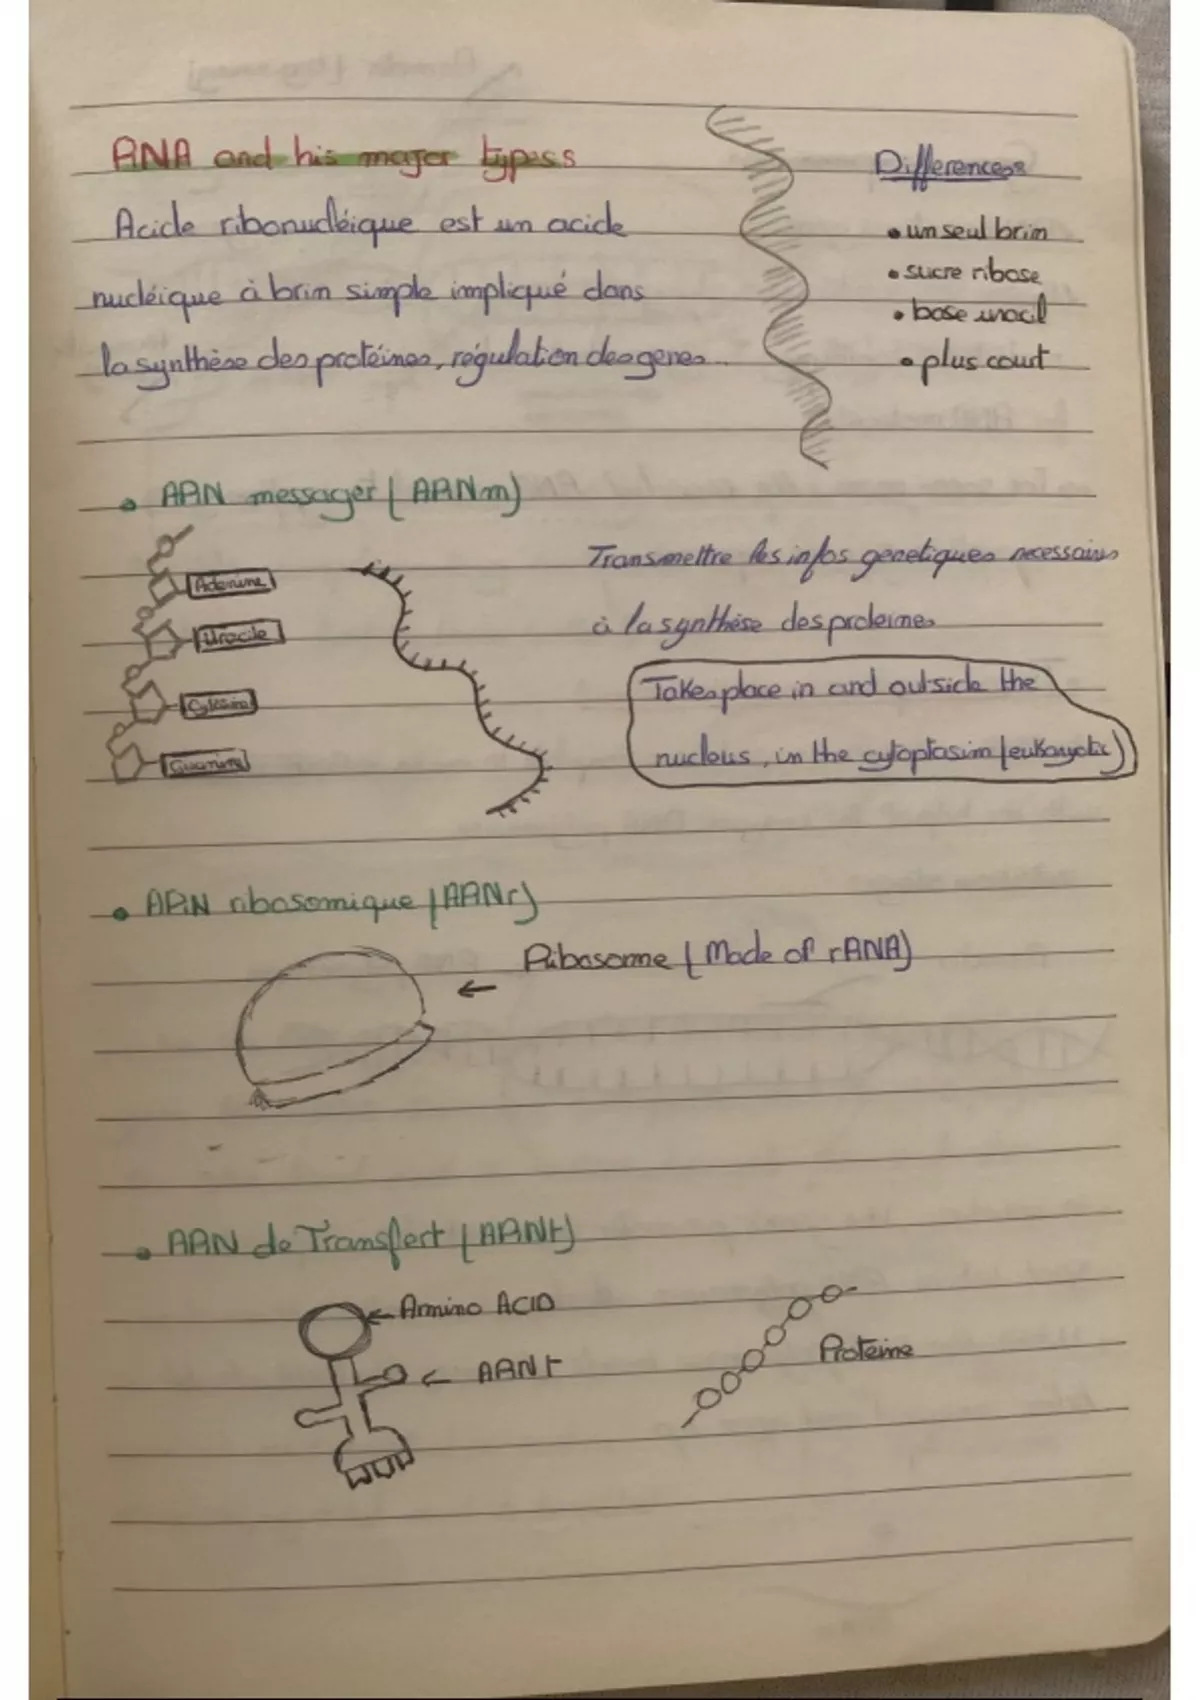 RNA and his major typess
Acide ribonucléique est un acide
nucléique à brin simple impliqué dans
la synthèse des protéines, régulation des genes...
Differencess
• un seul brin
• sucre ribose
• base uracil
• plus court
• ARN messager (ARNm)
Adenine
Uracile
Cytosine
Guanine
Transmettre les infos genetiques necessaires
à la synthèse des proteines
Takes place in and outside the
nucleus, in the cytoplasim (eukaryotic)
• ARN ribosomique (ARNr)
Ribosome (Made of rRNA)
• ARN de Transfert (ARNt)
Amino ACID
ARNt
Proteine